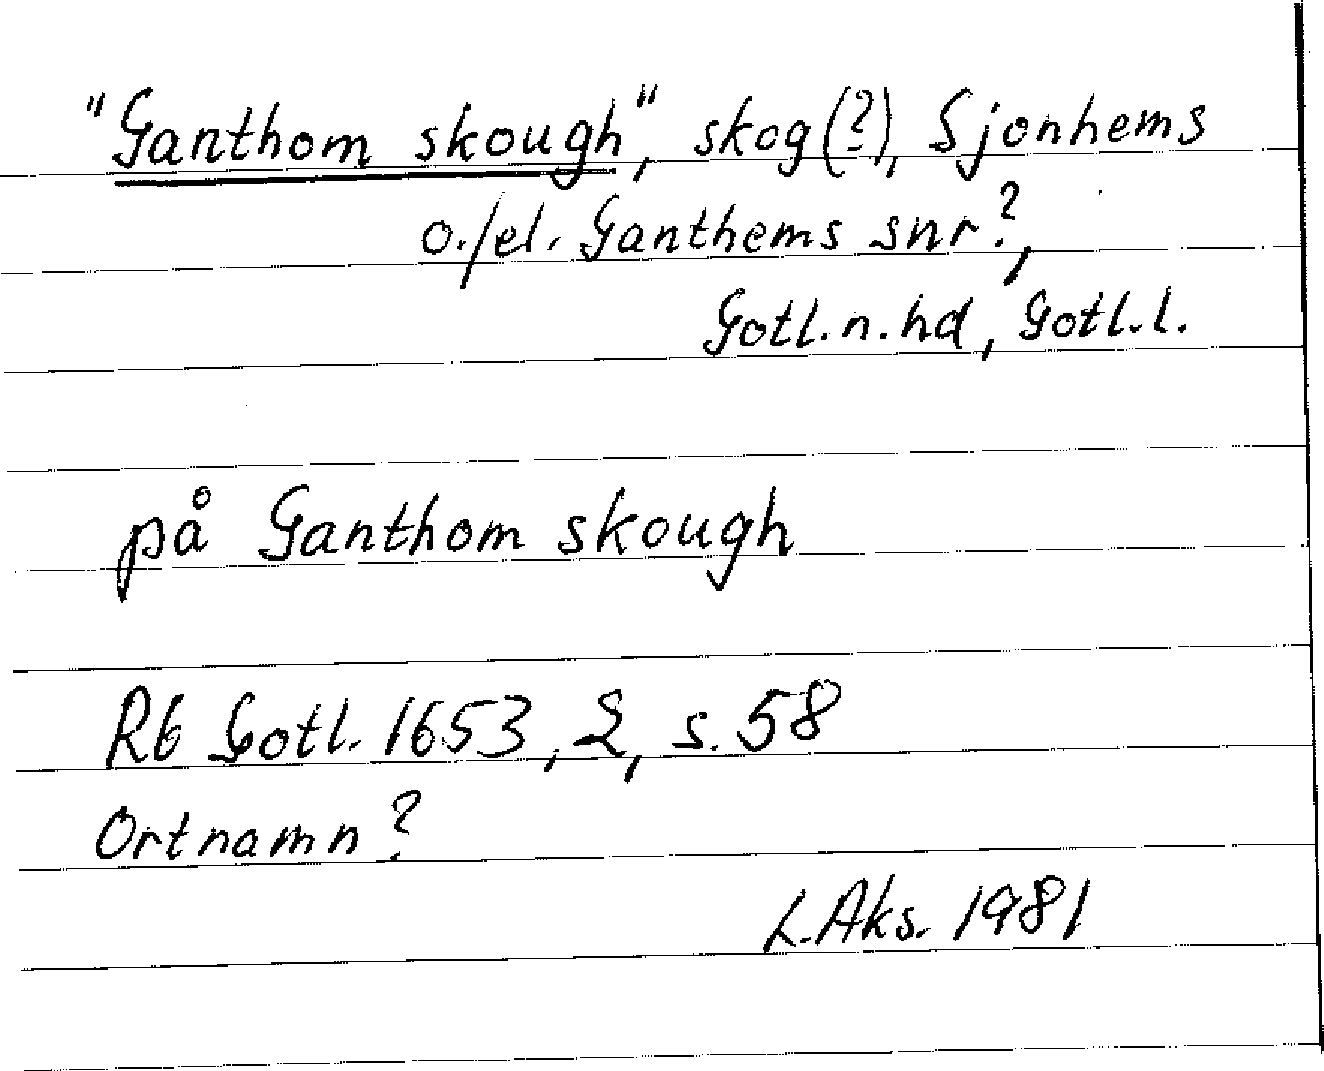 "Ganthom skough", skog(?), Sjonhems
o./el. Ganthems snr?,
Gotl.n.hd, Gotl.l.
på Ganthom skough
Rb Gotl. 1653, 2, s. 58
Ortnamn?
L.Aks. 1981